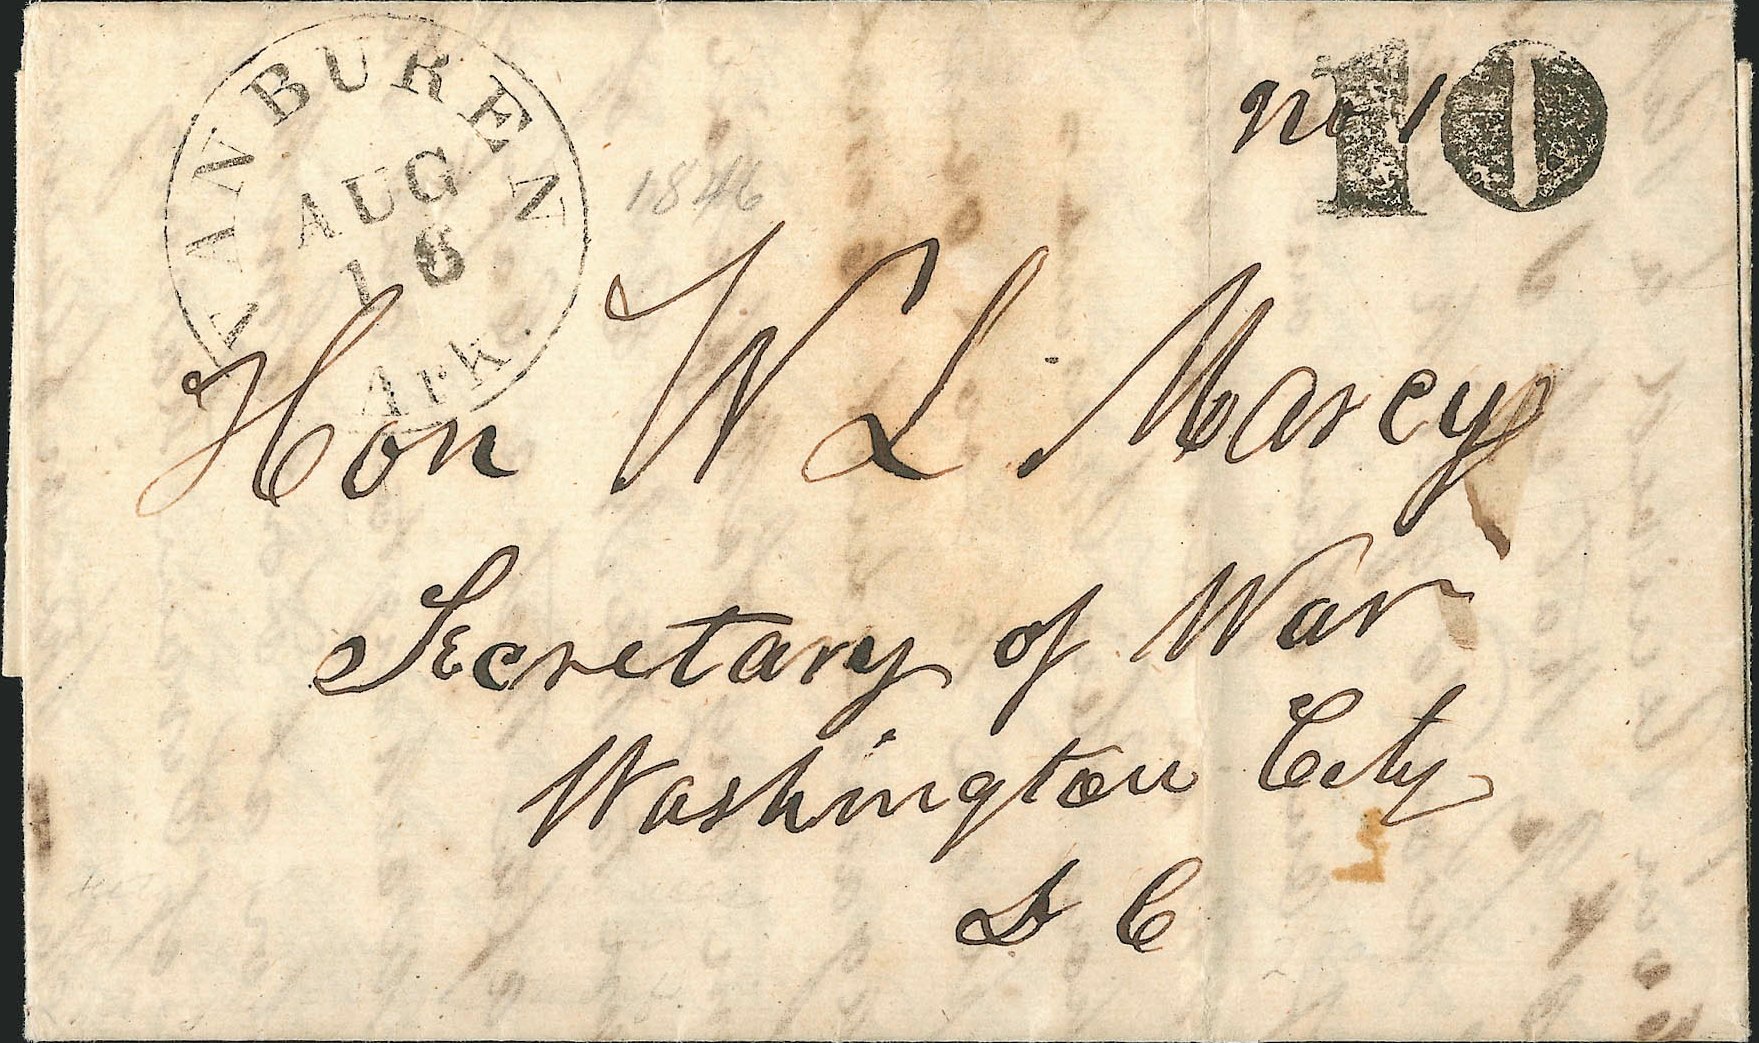 VAN BUREN
AUG
16
Ark.
1846
No 1
10
Hon W L. Marcy
Secretary of War
Washington City
D C